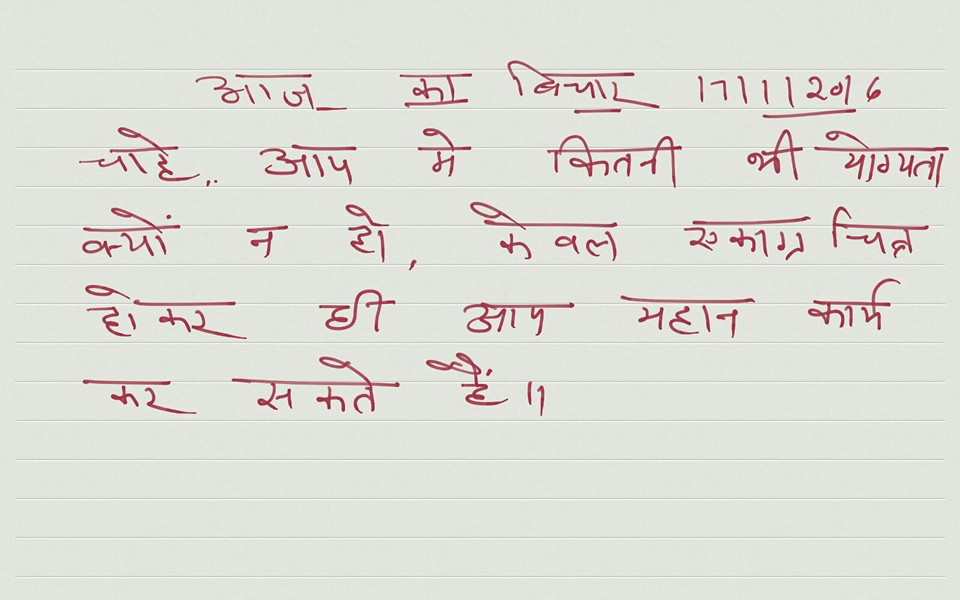 आज का विचार 17/11/2016
चाहे.. आप मे कितनी भी योग्यता
क्यों न हो, केवल एकाग्र चित्त
होकर ही आप महान कार्य
कर सकते हैं॥